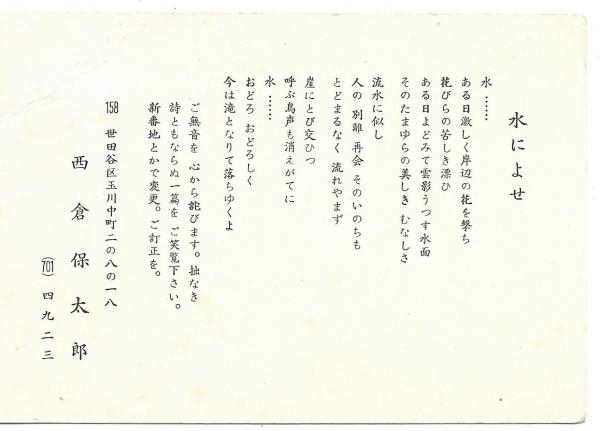 水によせ
水……
ある日激しく岸辺の花を撃ち
花びらの苦しき漂ひ
ある日よどみて雲影うつす水面
そのたまゆらの美しき むなしさ
流水に似し
人の 別離 再会 そのいのちも
とどまるなく 流れやまず
崖にとび交ひつ
呼ぶ鳥声も消えがてに
水……
おどろ おどろしく
今は滝となりて落ちゆくよ
ご無音を 心から詫びます。拙なき
詩ともならぬ一篇を ご笑覧下さい。
新番地とかで変更。ご訂正を。
158 世田谷区玉川中町二の八の一八
西倉保太郎
(701) 四九二三